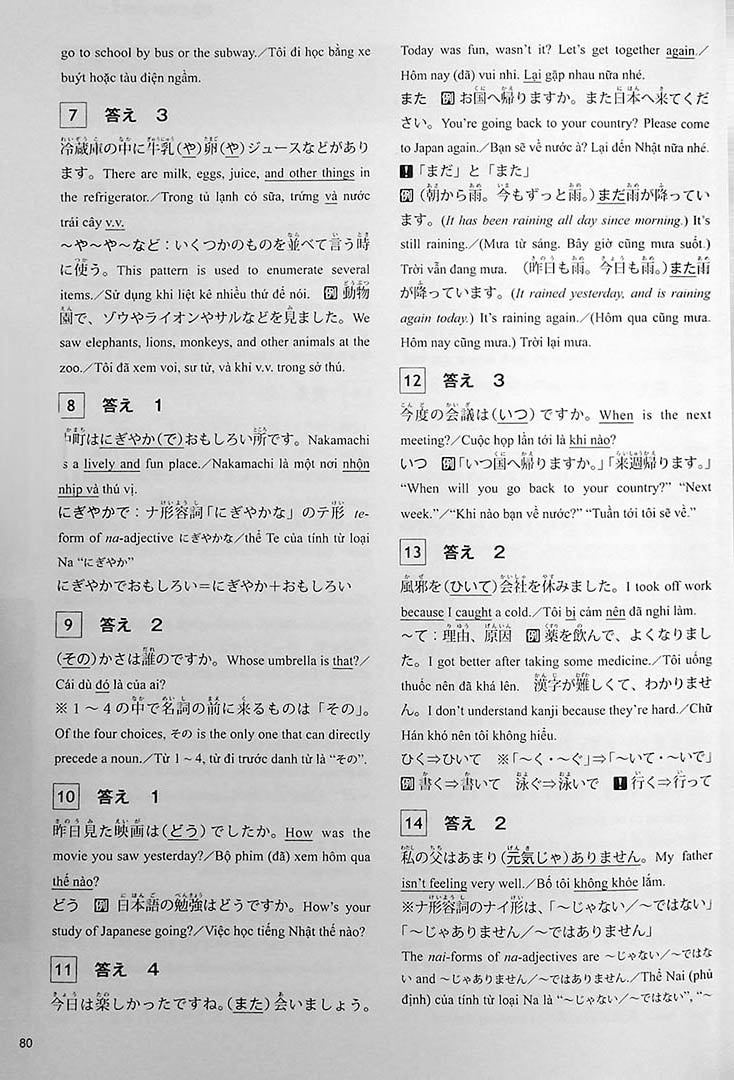 go to school by bus or the subway.／Tôi đi học bằng xe
buýt hoặc tàu điện ngầm.
7 答え 3
冷蔵庫の中に牛乳(や)卵(や)ジュースなどがあり
ます。There are milk, eggs, juice, and other things in
the refrigerator.／Trong tủ lạnh có sữa, trứng và nước
trái cây v.v.
～や～や～など：いくつかのものを並べて言う時
に使う。This pattern is used to enumerate several
items.／Sử dụng khi liệt kê nhiều thứ để nói. 例 動物
園で、ゾウやライオンやサルなどを見ました。We
saw elephants, lions, monkeys, and other animals at the
zoo.／Tôi đã xem voi, sư tử, và khỉ v.v. trong sở thú.
8 答え 1
町はにぎやか(で)おもしろい所です。Nakamachi
s a lively and fun place.／Nakamachi là một nơi nhộn
nhịp và thú vị.
にぎやかで：ナ形容詞「にぎやかな」のテ形 te-
form of na-adjective にぎやかな／thể Te của tính từ loại
Na “にぎやか”
にぎやかでおもしろい＝にぎやか＋おもしろい
9 答え 2
(その)かさは誰のですか。Whose umbrella is that?／
Cái dù đó là của ai?
※１～４の中で名詞の前に来るものは「その」。
Of the four choices, その is the only one that can directly
precede a noun.／Từ 1～4, từ đi trước danh từ là “その”.
10 答え 1
昨日見た映画は(どう)でしたか。How was the
movie you saw yesterday?／Bộ phim (đã) xem hôm qua
thế nào?
どう 例 日本語の勉強はどうですか。How's your
study of Japanese going?／Việc học tiếng Nhật thế nào?
11 答え 4
今日は楽しかったですね。(また)会いましょう。
80
Today was fun, wasn't it? Let's get together again.／
Hôm nay (đã) vui nhỉ. Lại gặp nhau nữa nhé.
また 例 お国へ帰りますか。また日本へ来てくだ
さい。You're going back to your country? Please come
to Japan again.／Bạn sẽ về nước à? Lại đến Nhật nữa nhé.
!「まだ」と「また」
例 (朝から雨。今もずっと雨。)まだ雨が降ってい
ます。(It has been raining all day since morning.) It's
still raining.／(Mưa từ sáng. Bây giờ cũng mưa suốt.)
Trời vẫn đang mưa. (昨日も雨。今日も雨。)また雨
が降っています。(It rained yesterday, and is raining
again today.) It's raining again.／(Hôm qua cũng mưa.
Hôm nay cũng mưa.) Trời lại mưa.
12 答え 3
今度の会議は(いつ)ですか。When is the next
meeting?／Cuộc họp lần tới là khi nào?
いつ 例「いつ国へ帰りますか。」「来週帰ります。」
“When will you go back to your country?” “Next
week.”／“Khi nào bạn về nước?” “Tuần tới tôi sẽ về.”
13 答え 2
風邪を(ひいて)会社を休みました。I took off work
because I caught a cold.／Tôi bị cảm nên đã nghỉ làm.
～て：理由、原因 例 薬を飲んで、よくなりまし
た。I got better after taking some medicine.／Tôi uống
thuốc nên đã khá lên. 漢字が難しくて、わかりませ
ん。I don't understand kanji because they're hard.／Chữ
Hán khó nên tôi không hiểu.
ひく⇒ひいて ※「～く・～ぐ」⇒「～いて・～いで」
例 書く⇒書いて 泳ぐ⇒泳いで ! 行く⇒行って
14 答え 2
私の父はあまり(元気じゃ)ありません。My father
isn't feeling very well.／Bố tôi không khỏe lắm.
※ナ形容詞のナイ形は、「～じゃない／～ではない」
「～じゃありません／～ではありません」
The nai-forms of na-adjectives are ～じゃない／～ではな
い and ～じゃありません／～ではありません.／Thể Nai (phủ
định) của tính từ loại Na là “～じゃない／～ではない”, “～